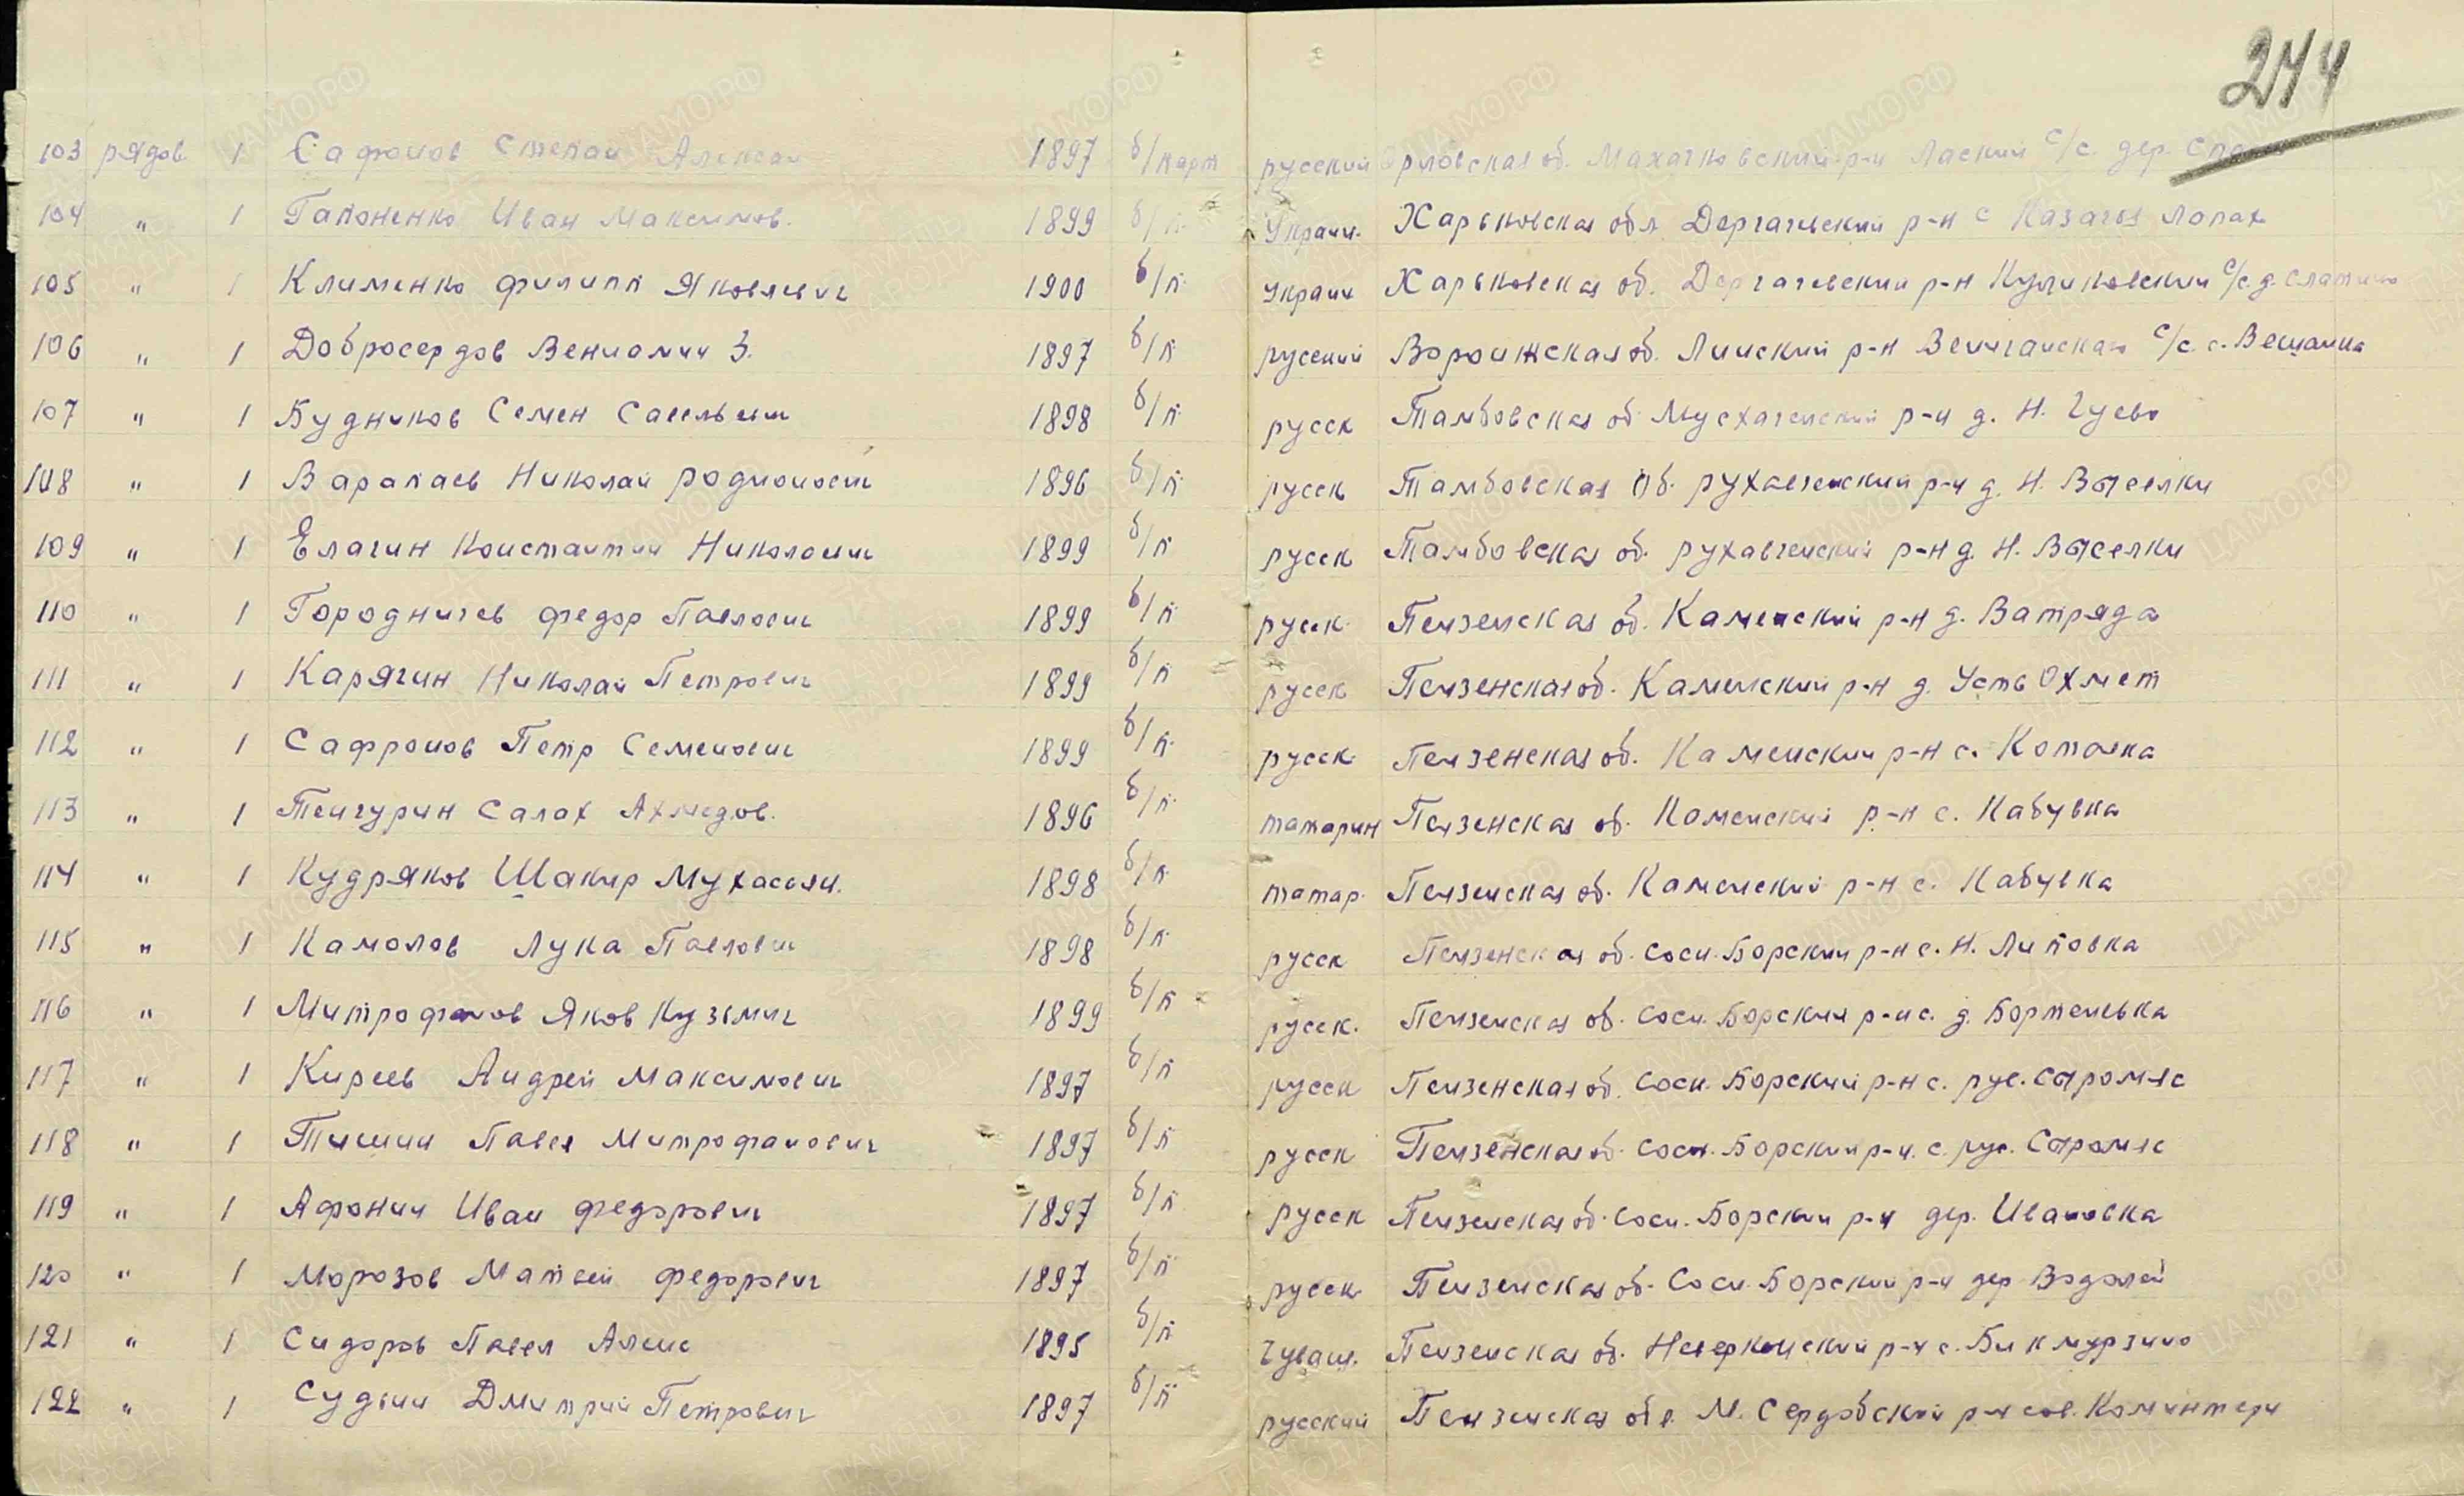 244
103 рядов. 1 Сафонов Степан Алексан 1897 б/парт русский Орловская об. р-н Лаский с/с. дер.
104 " 1 Гапоненко Иван Максимов. 1899 б/п. Украин. Харьковская обл Дергачевский р-н с Казачья Лопах
105 " 1 Клименко Филипп Яковлевич 1900 б/п. Украин Харьковская об. Дергачевский р-н Куликовский с/с. д. Слатино
106 " 1 Добросердов Вениамин З. 1897 б/п. русский Воронжская об. р-н с/с. с.
107 " 1 Будников Семен Савельич 1898 б/п. русск Тамбовская об р-н д. Н. Гуево
108 " 1 Варапаев Николай Родионович 1896 б/п. русск Тамбовская об. р-н д. Н. Выселки
109 " 1 Елагин Константин Николаич 1899 б/п. русск Тамбовская об. р-н д. Н. Выселки
110 " 1 Городничев Федор Павлович 1899 б/п. русск. Пензенская об. Каменский р-н д. Ватряда
111 " 1 Карягин Николай Петрович 1899 б/п русск Пензенская об. Каменский р-н д. Усть Охмет
112 " 1 Сафронов Петр Семенович 1899 б/п. русск. Пензенская об. Каменский р-н с.
113 " 1 Тенгурин Салах Ахмедов. 1896 б/п. татарин Пензенская об. Каменский р-н с. Кабувка
114 " 1 Кудряков Шакир Мухасьян. 1898 б/п. татар. Пензенская об. Каменский р-н с. Кабувка
115 " 1 Камолов Лука Павлович 1898 б/п. русск Пензенская об. Сосн. Борский р-н с. Н. Липовка
116 " 1 Митрофанов Яков Кузьмич 1899 б/п русск. Пензенская об. Сосн. Борский р-н с. д. Бортеневка
117 " 1 Киреев Андрей Максимович 1897 б/п русск Пензенская об. Сосн. Борский р-н с. рус. Сыромяс
118 " 1 Тишин Павел Митрофанович 1897 б/п русск Пензенская об. Сосн. Борский р-н. с. рус. Сыромяс
119 " 1 Афонин Иван Федорович 1897 б/п русск Пензенская об. Сосн. Борский р-н дер. Ивановка
120 " 1 Морозов Матвей Федорович 1897 б/п русск Пензенская об. Сосн. Борский р-н дер Водолей
121 " 1 Сидоров Павел Алекс 1895 б/п чуваш. Пензенская об. Неверкинский р-н с. Бикмурзино
122 " 1 Судьин Дмитрий Петрович 1897 б/п русский Пензенская обл. М. Сердобский р-н сов. Коминтерн